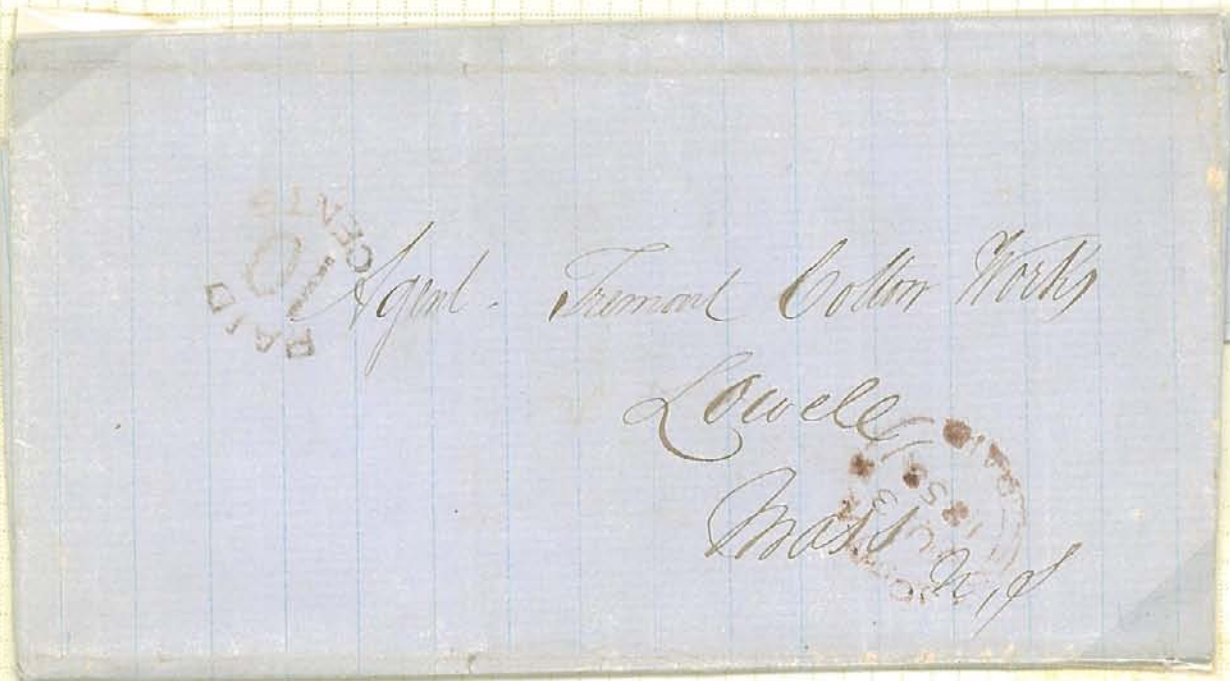 PAID 10 CENTS
Agent. Tremont Cotton Works
Lowell
Mass